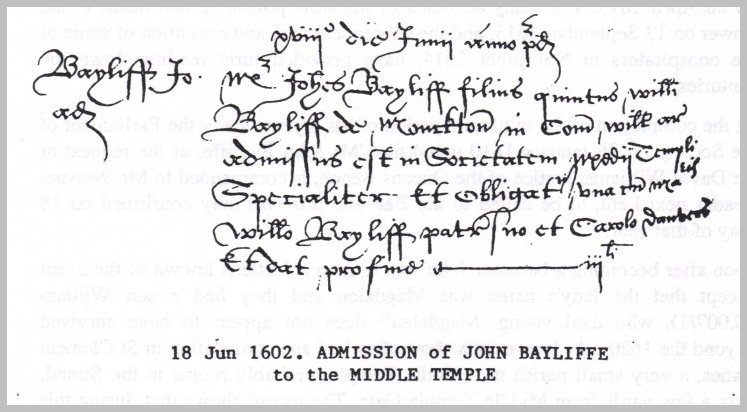 xviij die Junij Anno pd
Bayliff Jo. Mr Johes Bayliff filius quintus Willi
adm Bayliff de Monckton in Com Wilk ar
admissus est in Societatem Medij Templi
Specialiter Et obligat una cu
Willo Bayliff patre suo et Carolo
Et dat pro fine iij
18 Jun 1602. ADMISSION of JOHN BAYLIFFE
to the MIDDLE TEMPLE